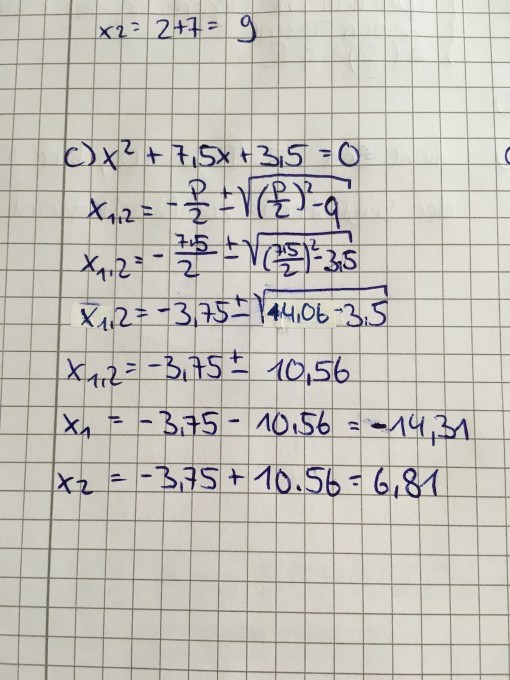 x2 = 2+7 = 9
c) x² + 7,5x + 3,5 = 0
x1,2 = -p/2 ± √((p/2)² - q)
x1,2 = -7,5/2 ± √((7,5/2)² - 3,5)
x1,2 = -3,75 ± √(14,06 - 3,5)
x1,2 = -3,75 ± 10,56
x1 = -3,75 - 10.56 = -14,31
x2 = -3,75 + 10.56 = 6,81